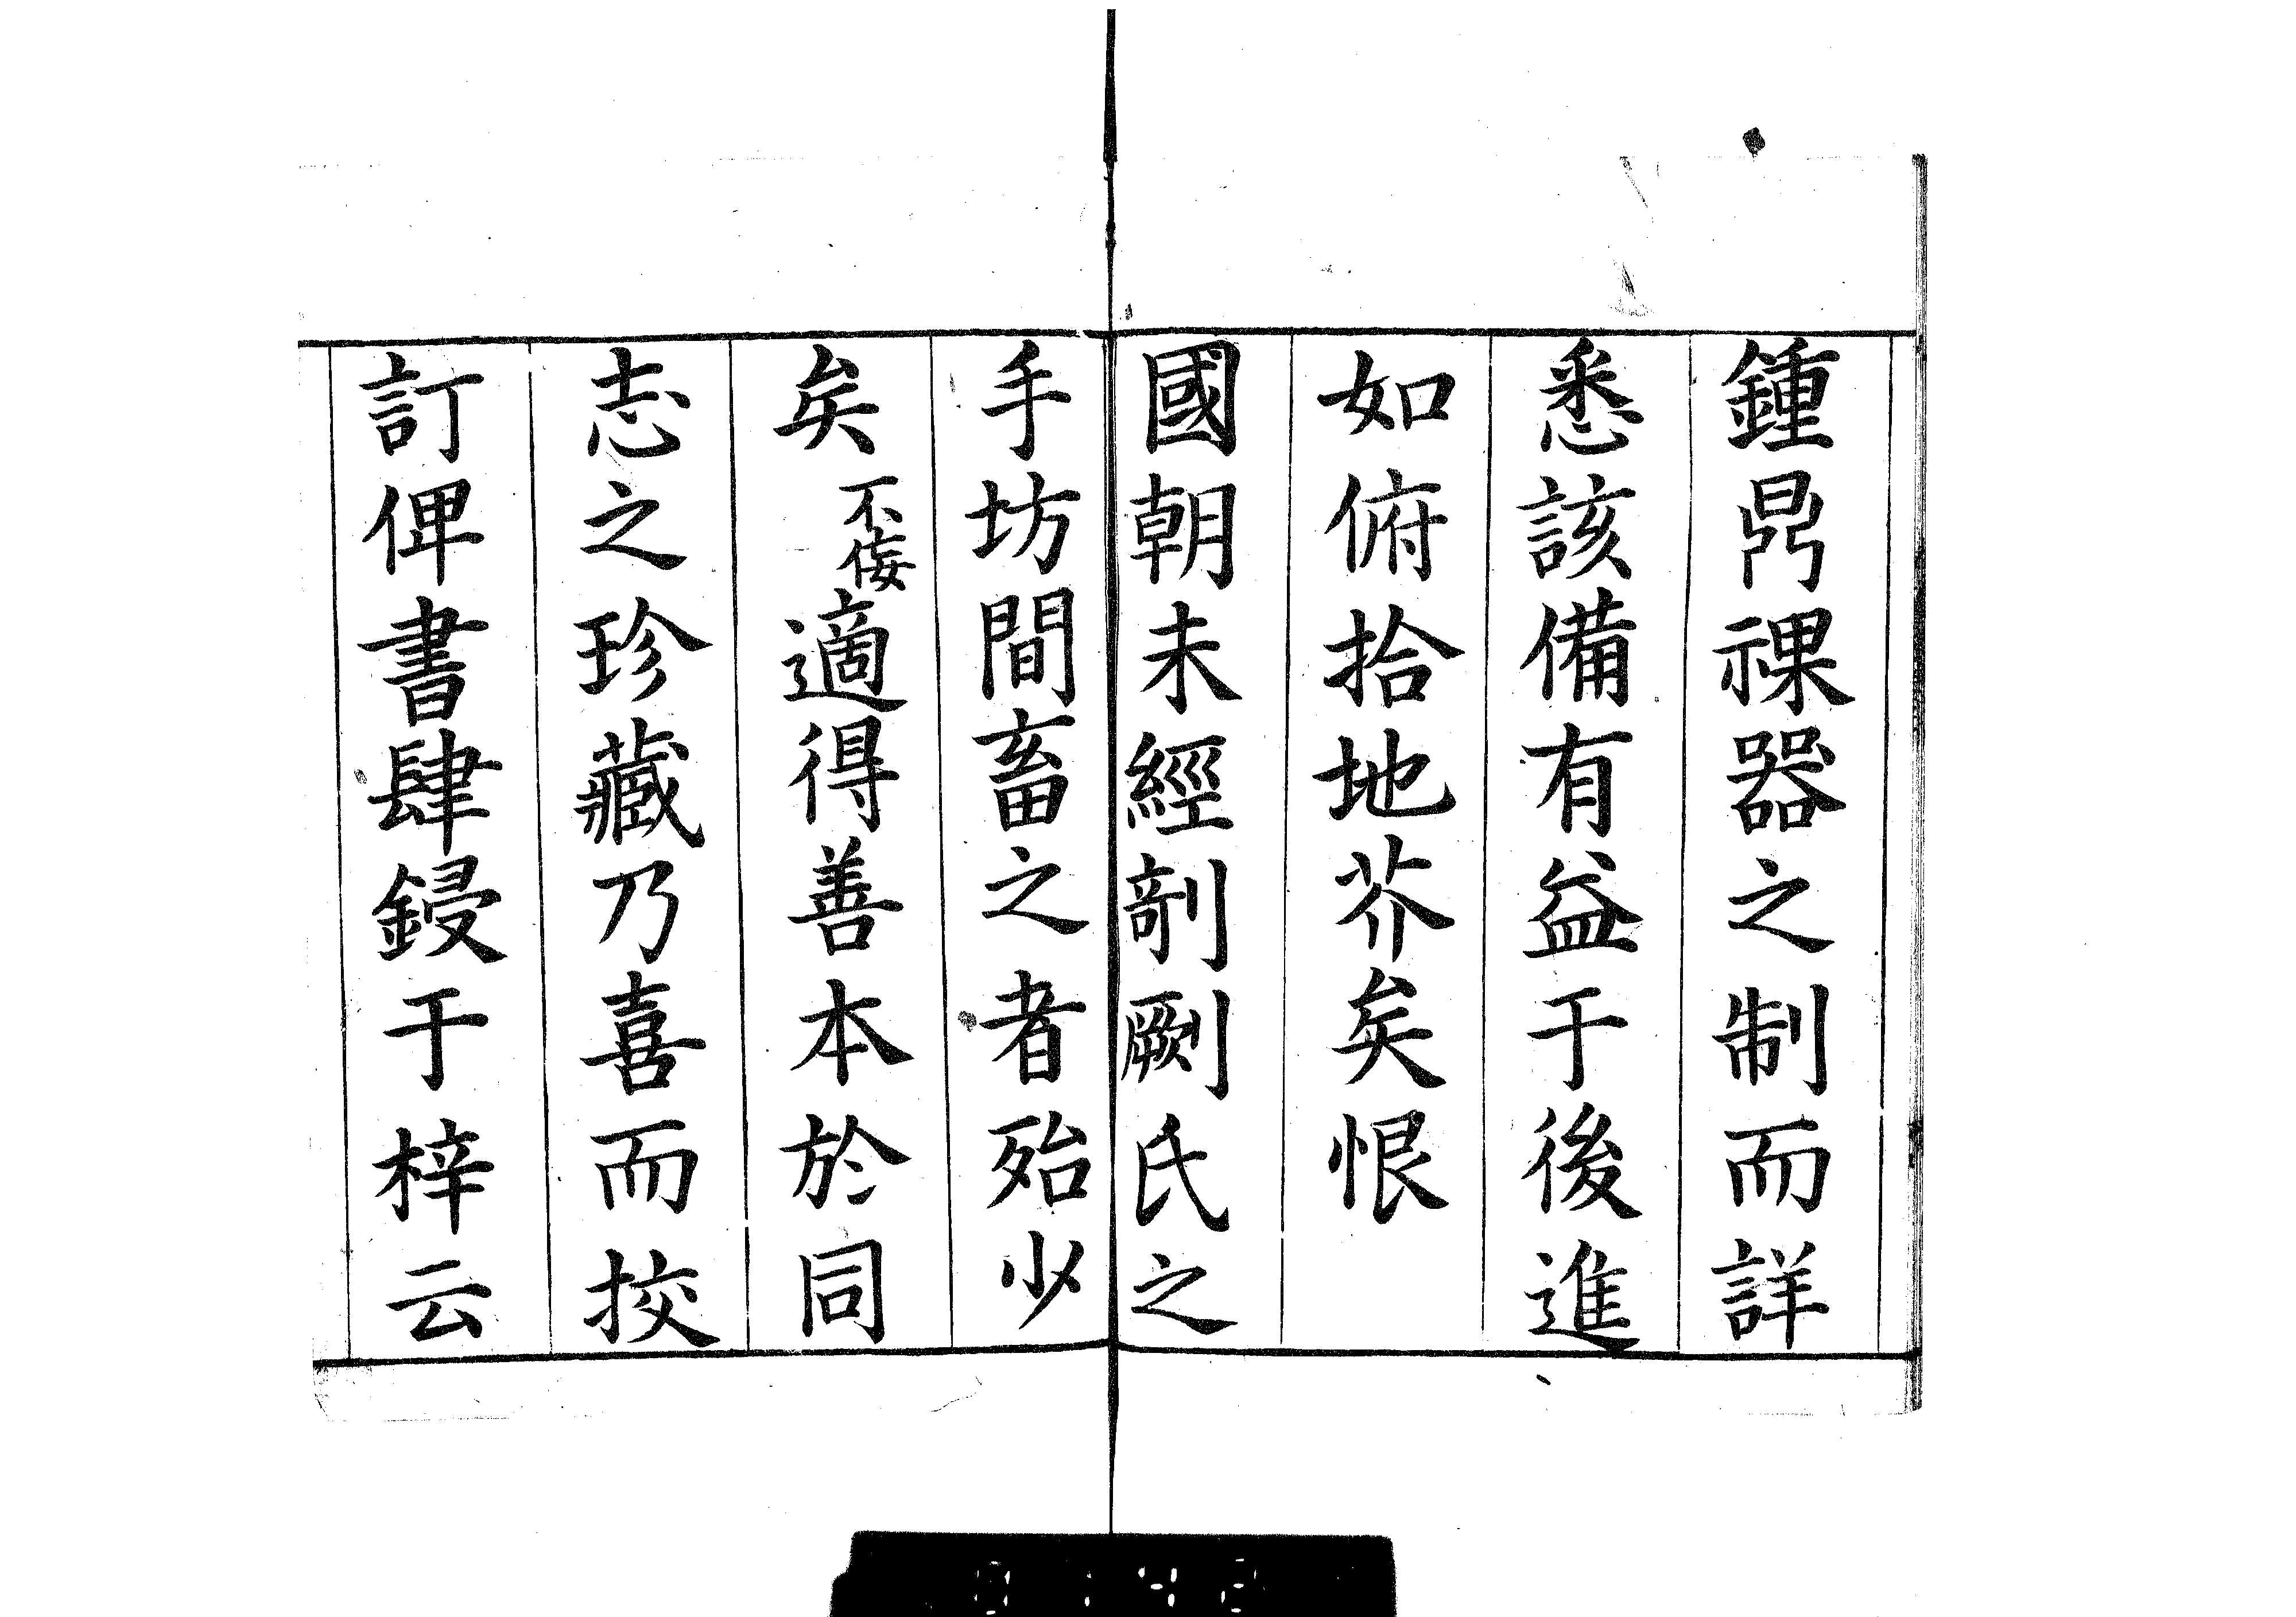 鍾鼎祼器之制而詳
悉該備有益于後進
如俯拾地芥矣恨
國朝未經剞劂氏之
手坊間畜之者殆少
矣不佞適得善本於同
志之珍藏乃喜而挍
訂俾書肆鋟于梓云